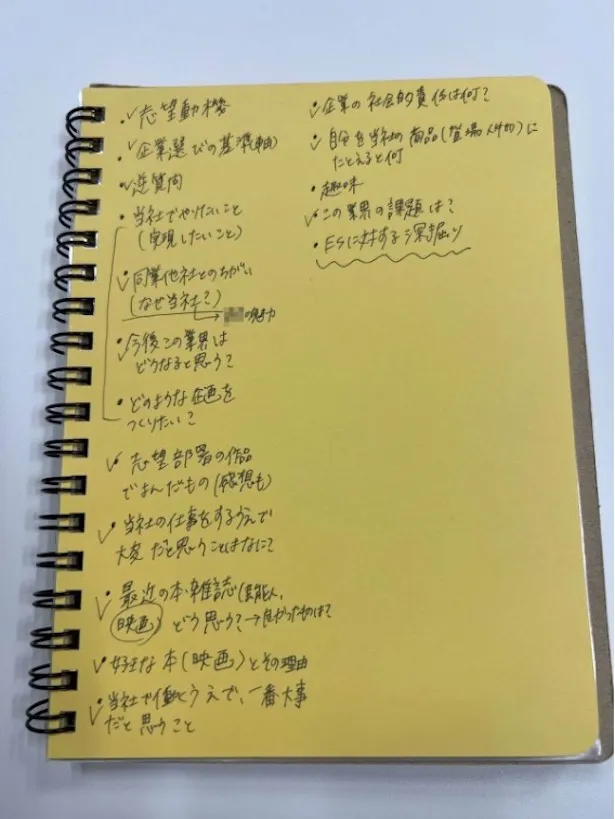 ・志望動機
・企業選びの基準(軸)
・逆質問
・当社でやりたいこと
(実現したいこと)
・同業他社とのちがい
(なぜ当社?)
→ の魅力
・今後この業界は
どうなると思う?
・どのような企画を
つくりたい?
・志望部署の作品
でよんだもの(感想も)
・当社の仕事をするうえで
大変だと思うことはなに?
・最近の本・雑誌(芸能人、
映画) どう思う?→良かったものは?
・好きな本(映画)とその理由
・当社で働くうえで、一番大事
だと思うこと
・企業の社会的責任は何?
・自分を当社の商品(登場人物)に
たとえると何
・趣味
・この業界の課題は?
・ESに対する深掘り